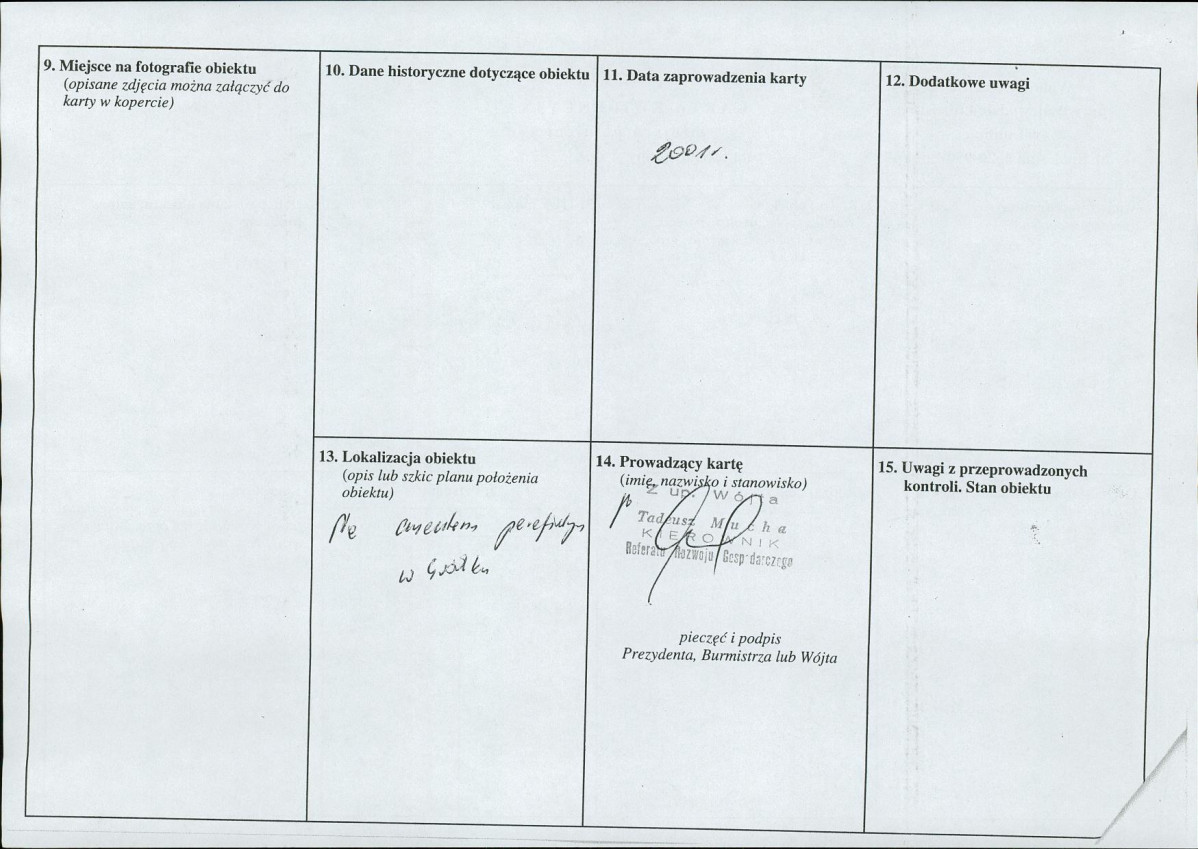 9. Miejsce na fotografie obiektu
(opisane zdjęcia można załączyć do
karty w kopercie)
10. Dane historyczne dotyczące obiektu
11. Data zaprowadzenia karty
2001r.
12. Dodatkowe uwagi
13. Lokalizacja obiektu
(opis lub szkic planu położenia
obiektu)
Na cmentarzu parafialnym
w
14. Prowadzący kartę
(imię, nazwisko i stanowisko)
Z up. Wójta
Tadeusz Mucha
KIEROWNIK
Referatu Rozwoju Gospodarczego
pieczęć i podpis
Prezydenta, Burmistrza lub Wójta
15. Uwagi z przeprowadzonych
kontroli. Stan obiektu